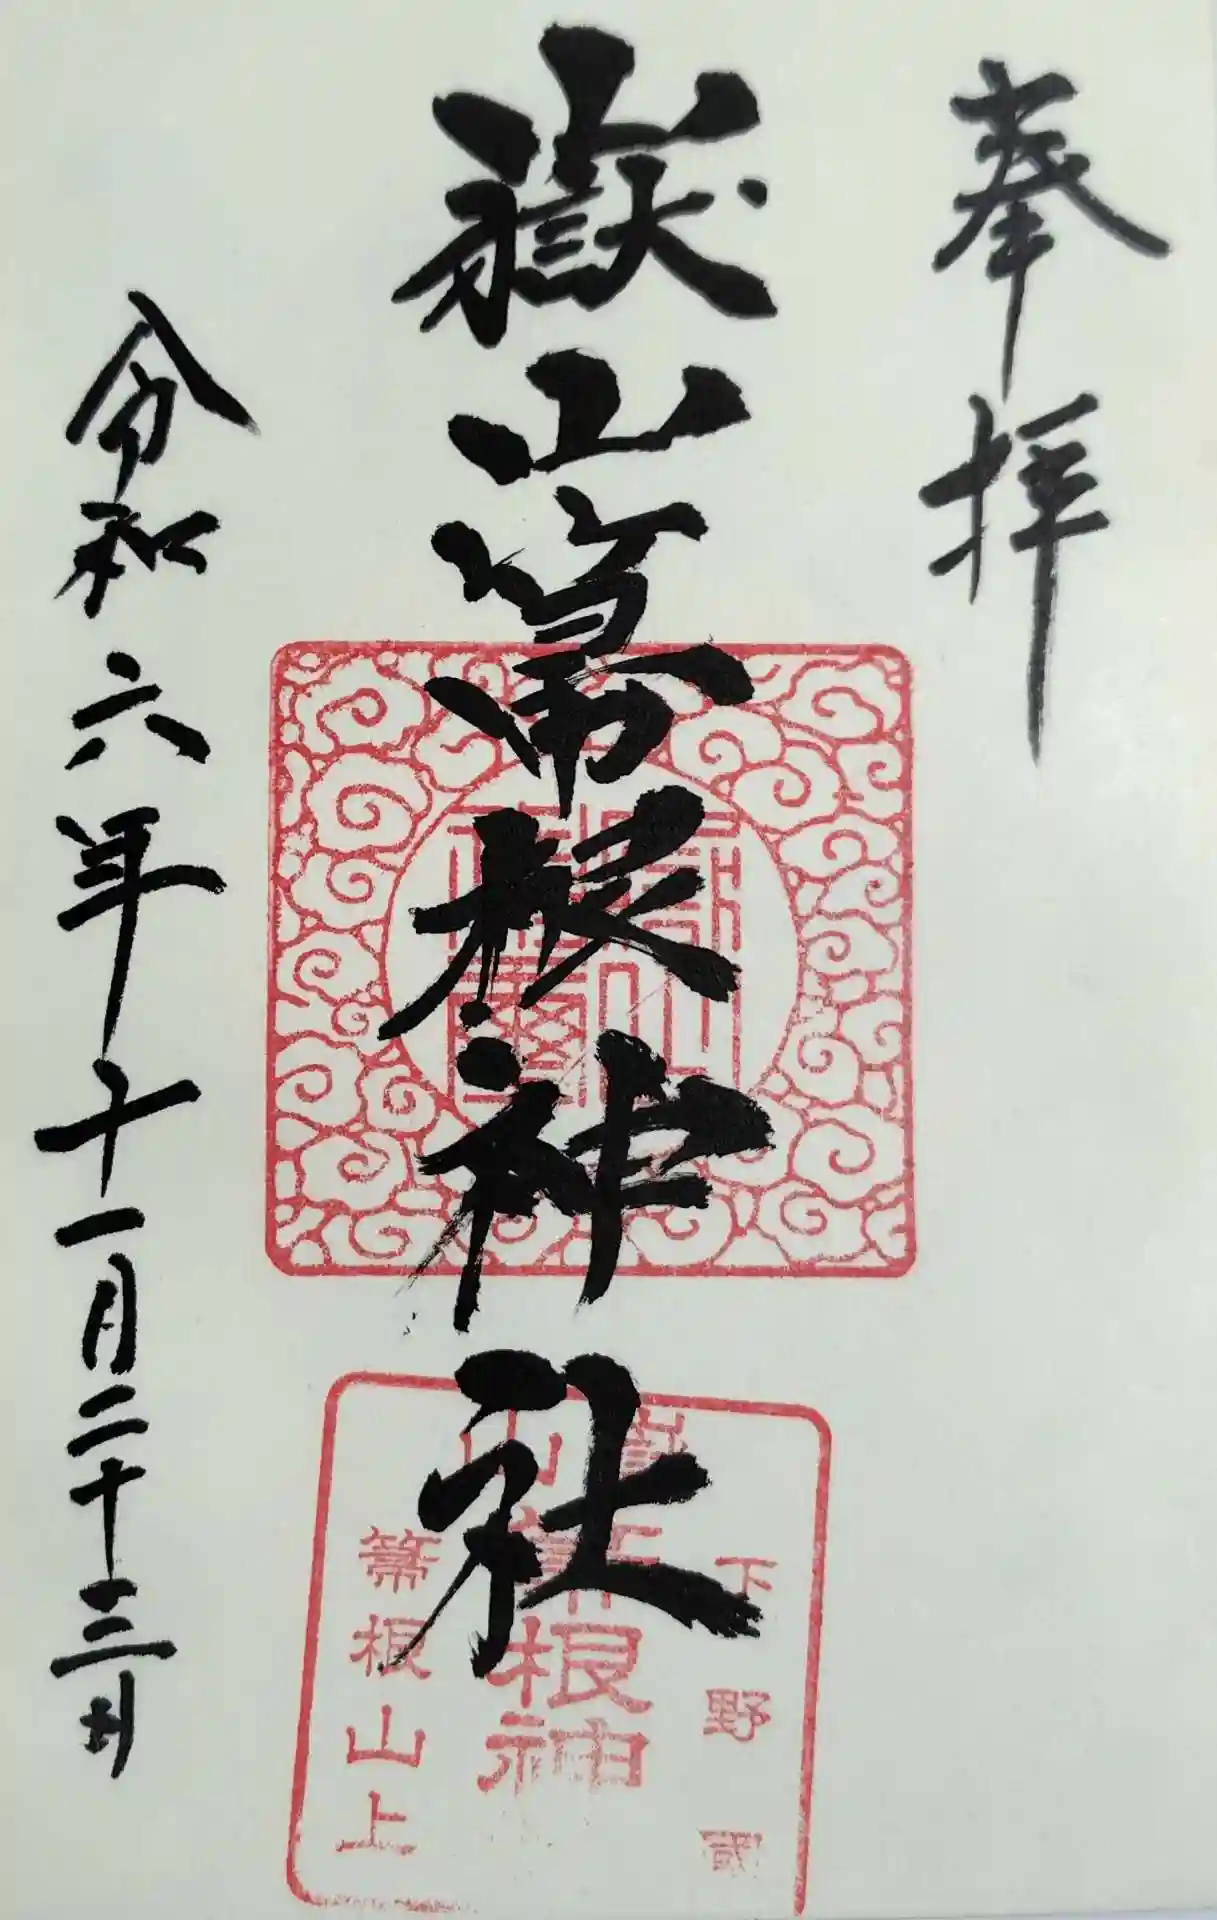 奉拝
嶽山箒根神社
令和六年十一月二十三日
下野國
山箒根神
箒根山上